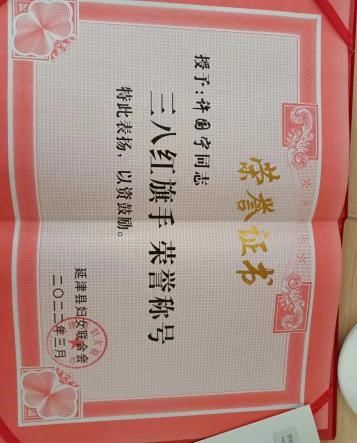 荣誉证书
授予:许国字同志
三八红旗手 荣誉称号
特此表扬，以资鼓励。
延津县妇女联合会
二〇二二年三月